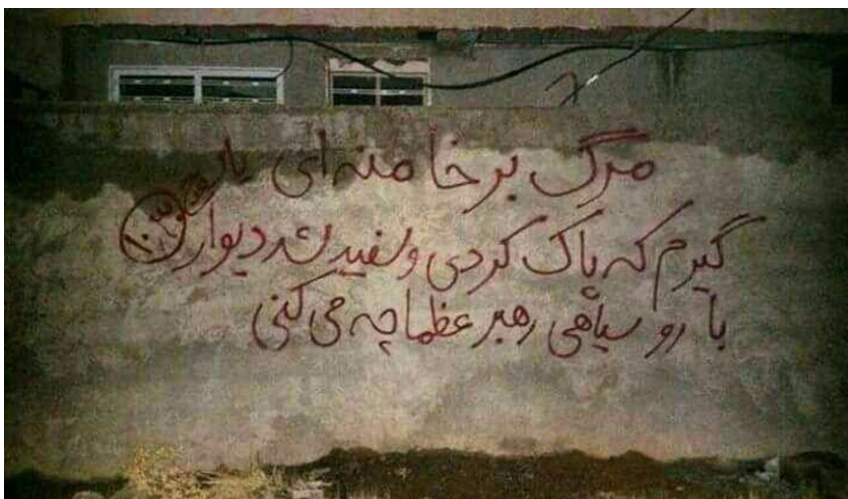 مرگ بر خامنه‌ای
گیرم که پاک کردی و سفید شد دیوار
با رو سیاهی رهبر عظما چه می کنی